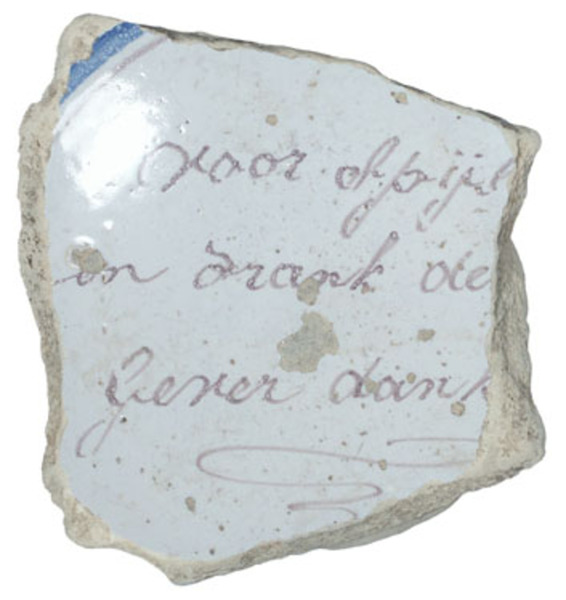 voor Spijs
en drank de
Gever dank